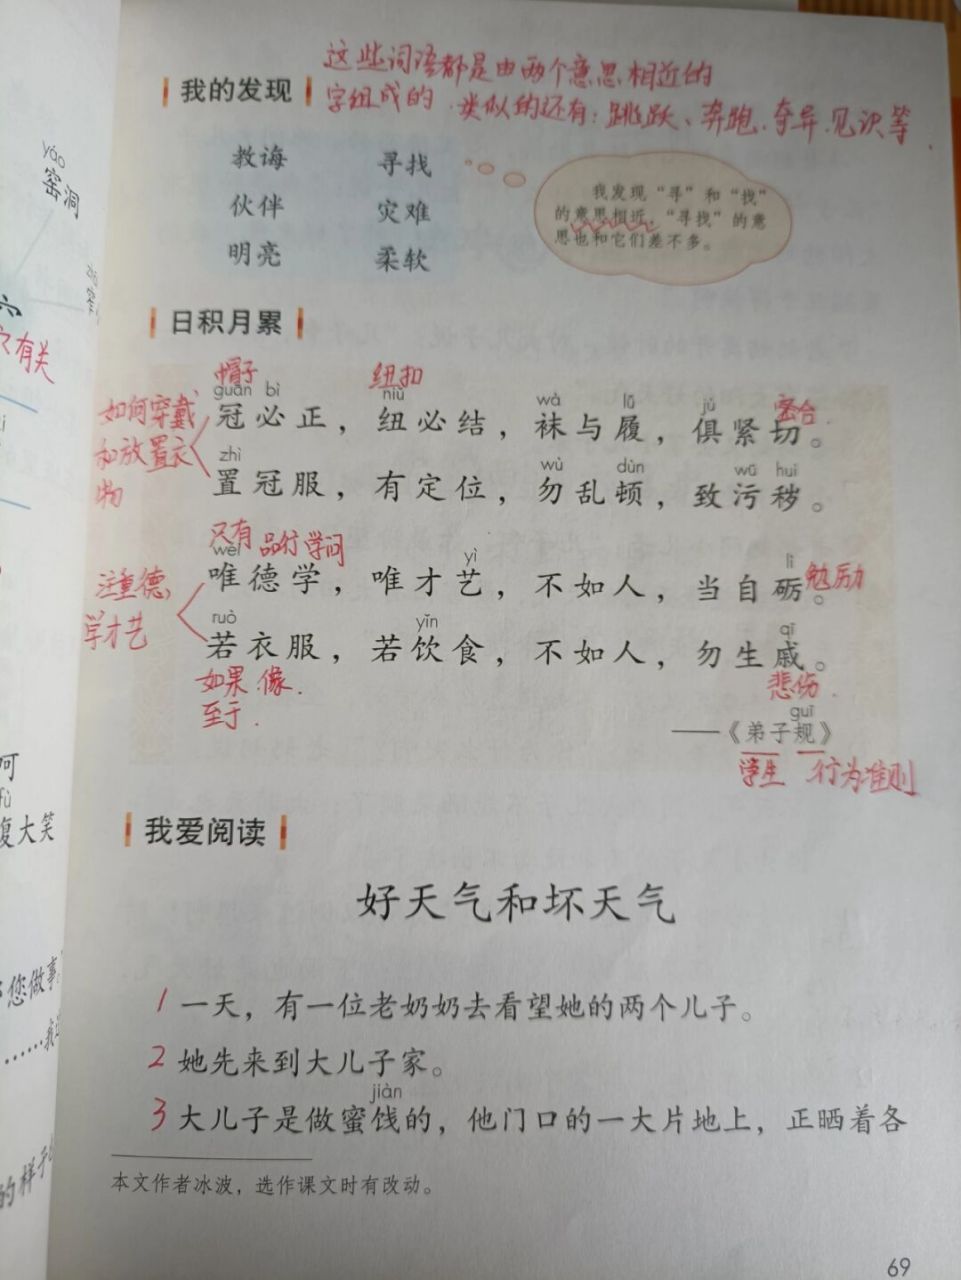 这些词语都是由两个意思相近的
字组成的.类似的还有:跳跃、奔跑.奇异.见识等.
我的发现
教诲 寻找
伙伴 灾难
明亮 柔软
我发现“寻”和“找”
的意思相近,“寻找”的意
思也和它们差不多。
yáo
窑洞
只有关
日积月累
帽子 纽扣
guān bì niǔ wà lǚ jù
密合
冠必正,纽必结,袜与履,俱紧切。
如何穿戴
和放置衣
物
zhì wù dùn wū huì
置冠服,有定位,勿乱顿,致污秽。
只有 品行学问
wéi yì lì
唯德学,唯才艺,不如人,当自砺。
勉励
注重德、
学才艺
ruò yǐn qī
若衣服,若饮食,不如人,勿生戚。
如果.像.
至于.
悲伤.
guī
——《弟子规》
学生 行为准则
我爱阅读
腹大笑
好天气和坏天气
您做事。
1 一天,有一位老奶奶去看望她的两个儿子。
2 她先来到大儿子家。
jiàn
3 大儿子是做蜜饯的,他门口的一大片地上,正晒着各
的样子
本文作者冰波,选作课文时有改动。
69